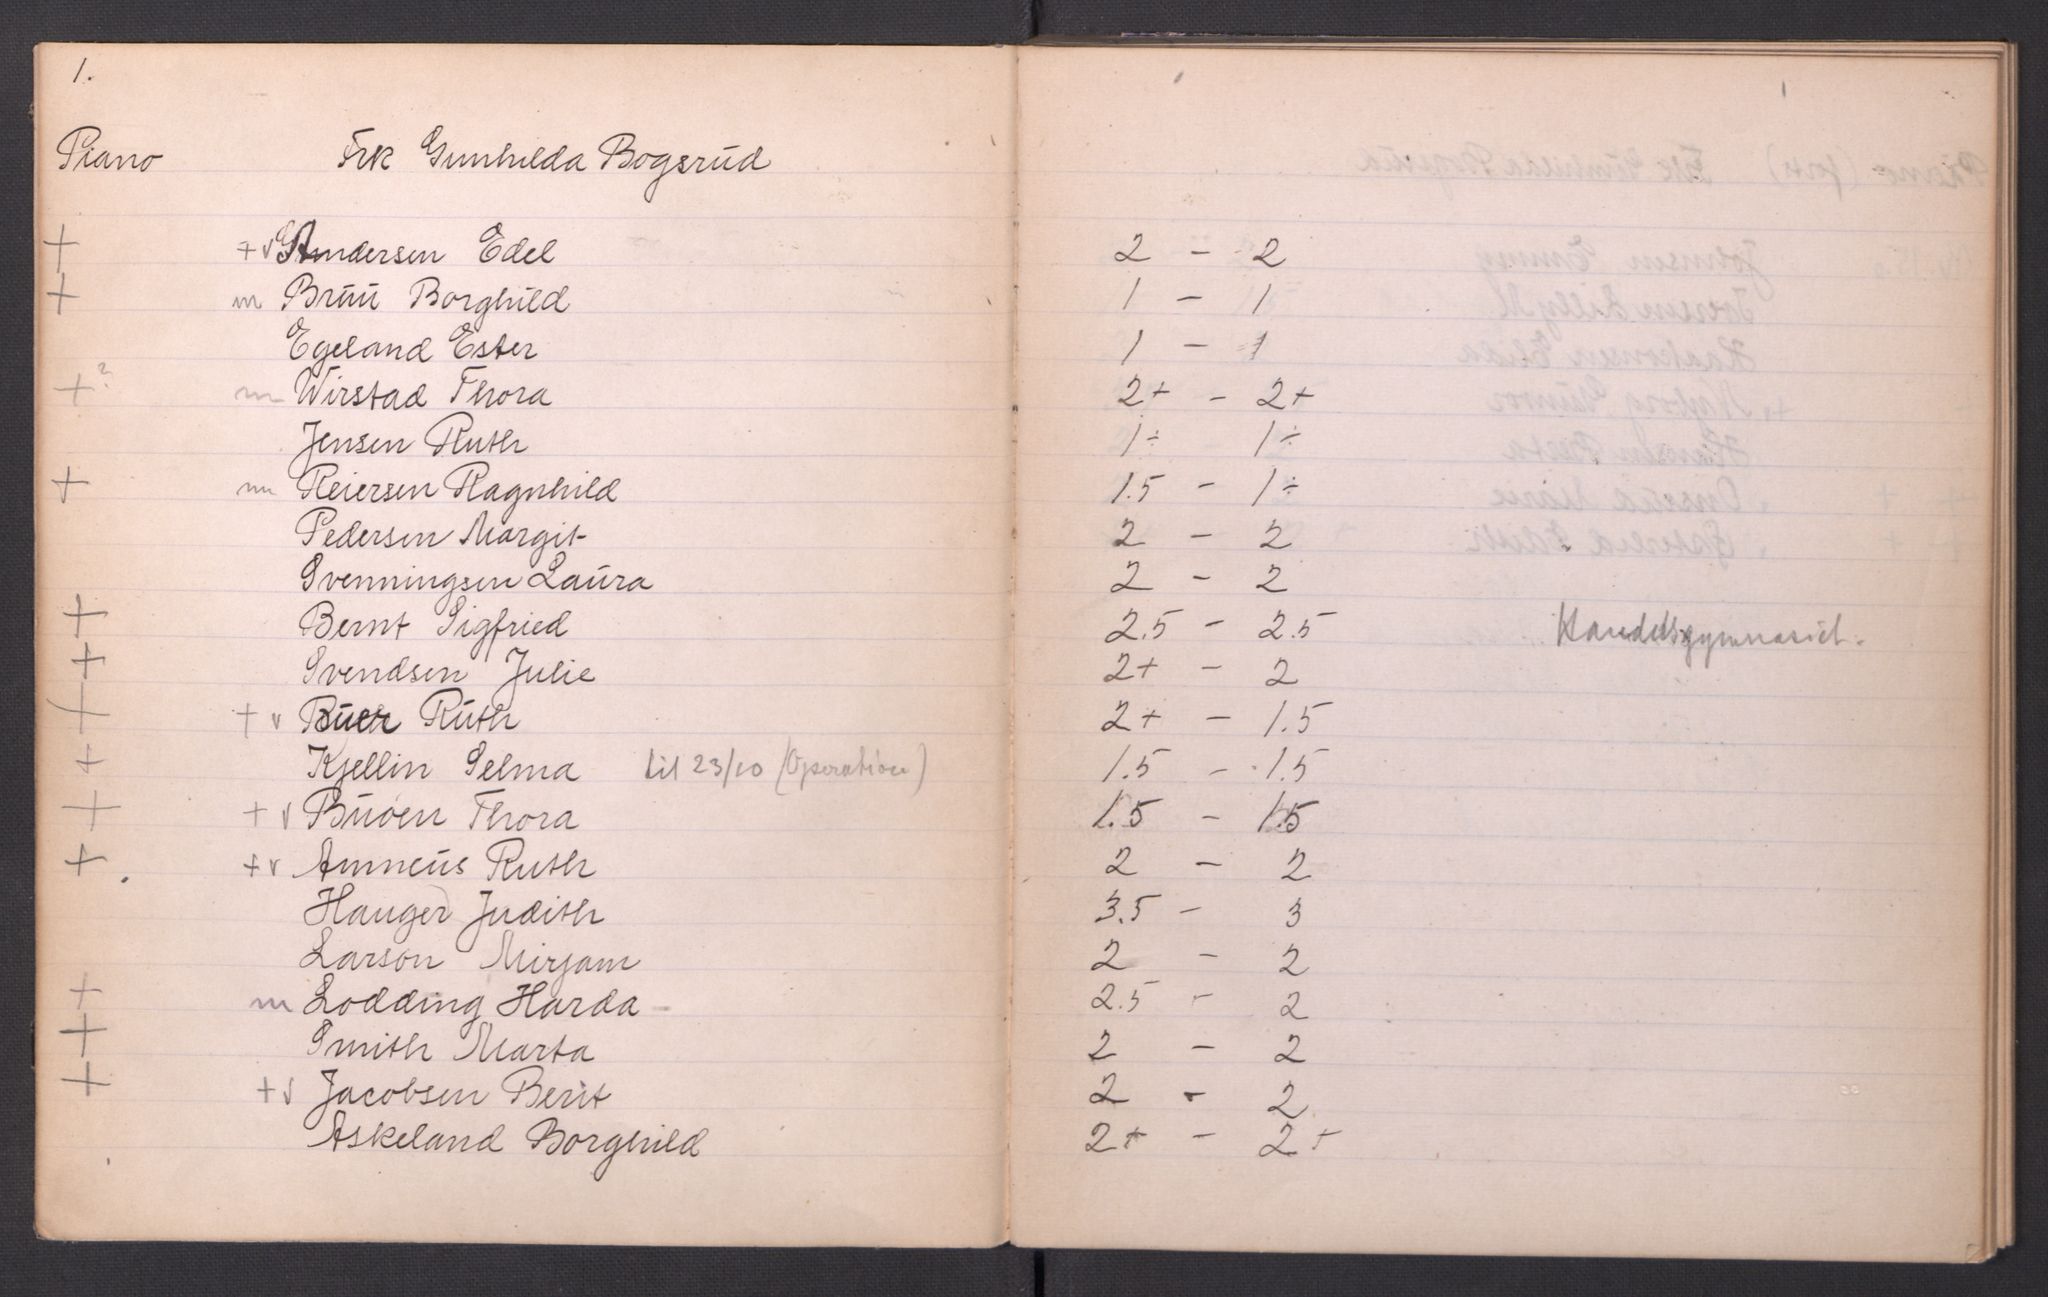 1.
Piano Frk Gunhilda Bogsrud
+ + v Andersen Edel 2 - 2
+ m Bruu Borghild 1 - 1
Egeland Ester 1 - 1
+? m Wirstad Thora 2+ - 2+
Jensen Ruth 1÷ 1÷
+ m Reiersen Ragnhild 1.5 - 1÷
Pedersen Margit 2 - 2
Svenningsen Laura 2 - 2
+ Bernt Sigfried 2.5 - 2.5 Handelsgymnasiet.
+ Svendsen Julie 2+ - 2
+ + v Buer Ruth 2+ - 1.5
+ Kjellin Selma til 23/10 (Operation) 1.5 - 1.5
+ + v Buøen Thora 1.5 - 1.5
+ + v Amneus Ruth 2 - 2
Hauger Judith 3.5 - 3
Larson Mirjam 2 - 2
+ m Lodding Harda 2.5 - 2
+ Smith Marta 2 - 2
+ + v Jacobsen Berit 2 - 2
Askeland Borghild 2+ - 2+